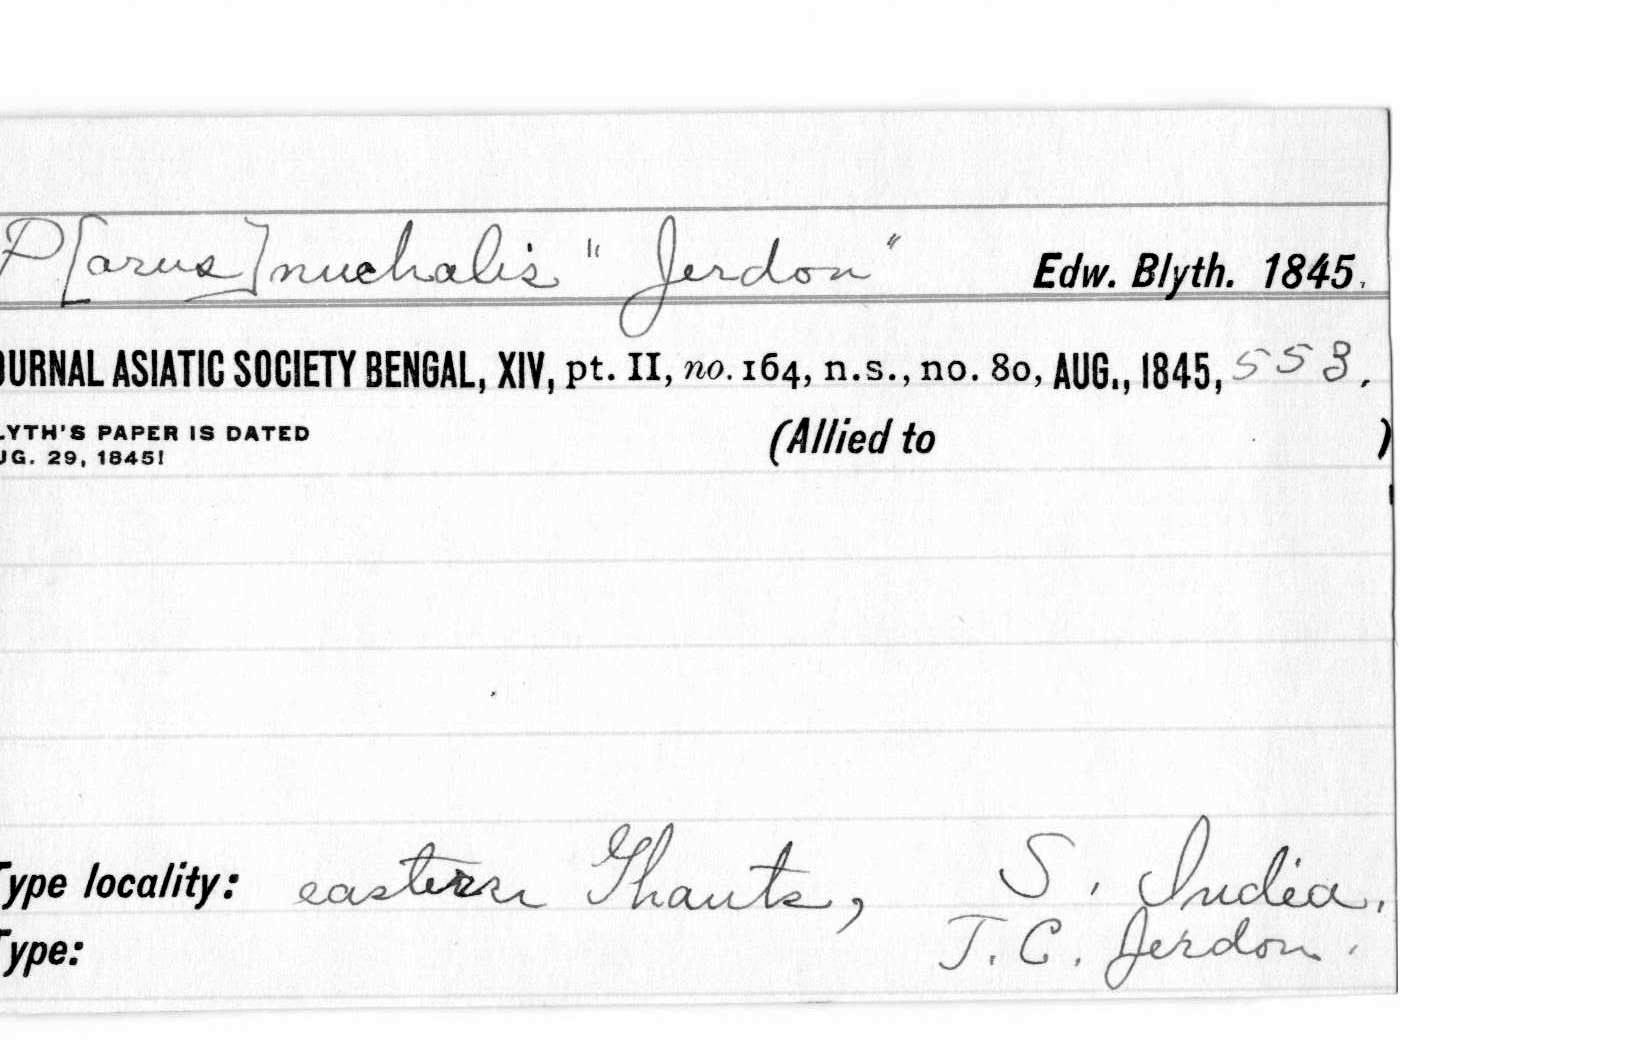 P[arus] nuchalis "Jerdon" Edw. Blyth. 1845.
OURNAL ASIATIC SOCIETY BENGAL, XIV, pt. II, no. 164, n.s., no. 80, AUG., 1845, 553.
LYTH'S PAPER IS DATED (Allied to )
UG. 29, 1845!
Type locality: eastern Ghauts, S. India.
Type: T. C. Jerdon.